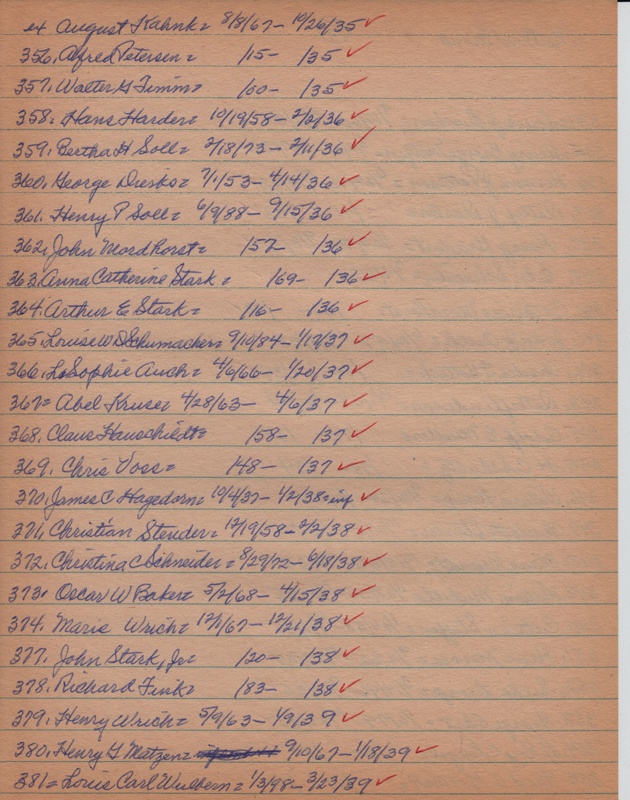 ex August Kahnk = 8/8/67 - 10/26/35 ✓
356. Alfred Petersen = /15 - /35 ✓
357. Walter G Timm = /00 - /35 ✓
358. Hans Harder = 10/19/58 - 2/2/36 ✓
359. Bertha H Soll = 2/18/73 - 2/11/36 ✓
360. George Dresks = 7/1/53 - 4/14/36 ✓
361. Henry P Soll = 6/9/88 - 9/15/36 ✓
362. John Mordhorst = /52 /36 ✓
363. Anna Catherine Stark = /69 - /36 ✓
364. Arthur E Stark = /16 - /36 ✓
365. Louise W D Schumacher = 9/10/84 - 1/17/37 ✓
366. Sophie Auch = 4/6/66 - 1/20/37 ✓
367 = Abel Kruse = 4/28/63 - 4/6/37 ✓
368. Claus Hauschildt = /58 - /37 ✓
369. Chris Voss = /48 - /37 ✓
370. James C Hagedorn = 10/4/37 - 1/2/38 = inf ✓
371. Christian Steuder = 12/19/58 - 2/2/38 ✓
372. Christina C Schneider = 8/29/72 - 6/18/38 ✓
373. Oscar W Baker = 5/2/68 - 4/15/38 ✓
374. Marie Wrich = 12/1/67 - 12/21/38 ✓
377. John Stark, Jr = /20 - /38 ✓
378. Richard Fink = /83 - /38 ✓
379. Henry Wrich = 5/9/63 - 1/9/39 ✓
380. Henry G Matzen = 9/10/67 - 1/18/39 ✓
381 = Louis Carl Wulbern = 1/3/98 - 3/23/39 ✓